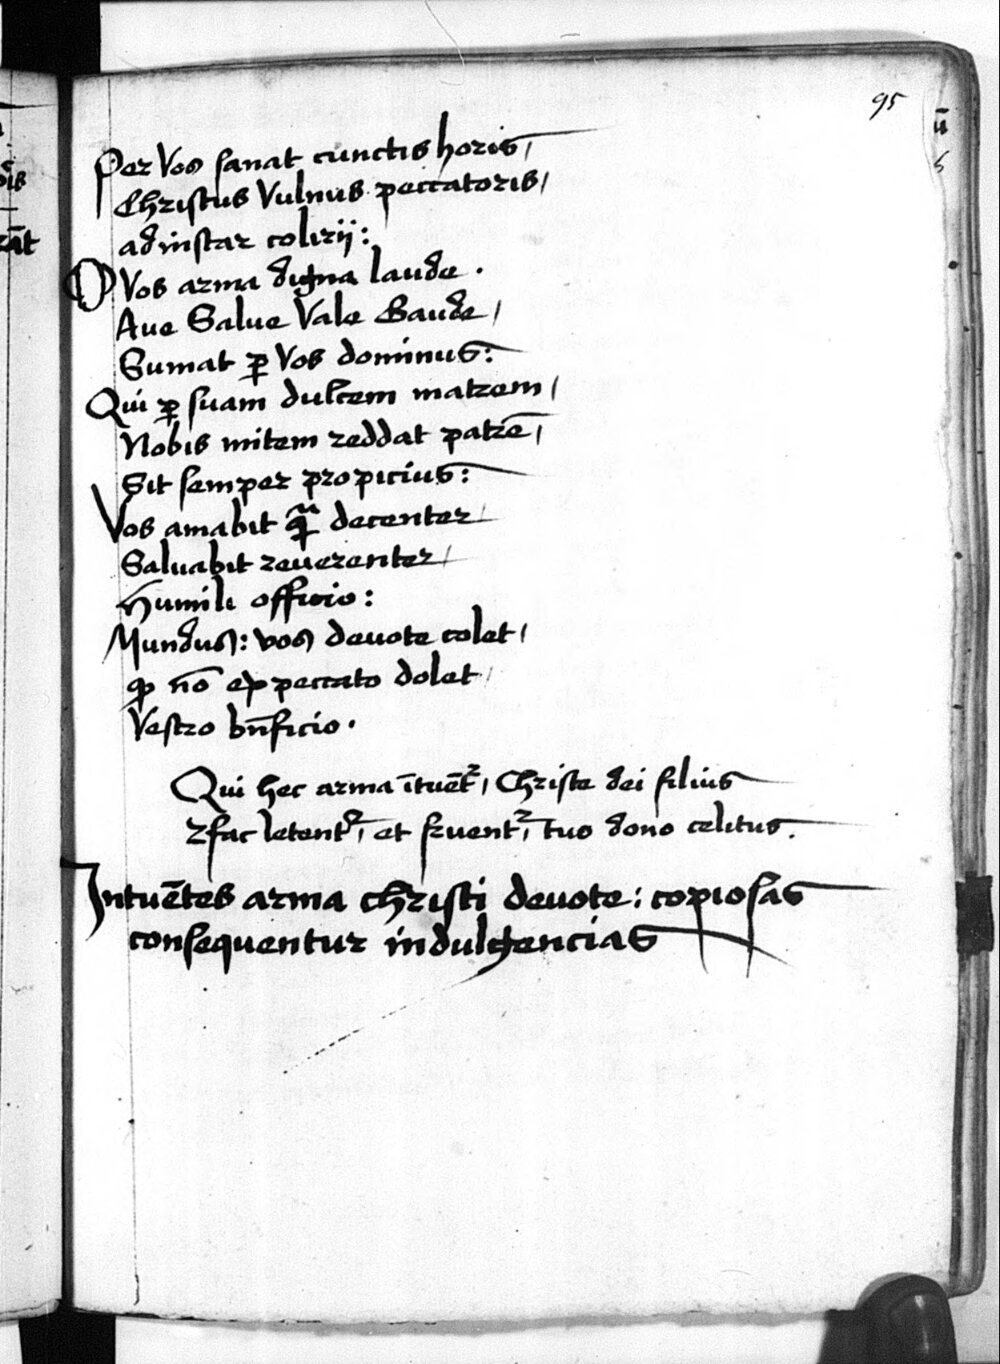 95
Per Vos sanat cunctis horis /
Christus Vulnus peccatoris /
adinstar colirij :
O Vos arma digna laude .
Aue Salue Vale Gaude /
Sumat ꝑ Vos dominus :
Qui ꝑ suam dulcem matrem /
Nobis mitem reddat patrē /
Sit semper propicius :
Vos amabit decenter /
Saluabit reuerenter /
Humili officio :
Mundus : vos deuote colet /
nō ex peccato dolet /
Vestro bn̄ficio .
Qui hec arma ītuēt᷑ / Christe dei filius
fac letent᷑ / et fruent᷑ / tuo dono celitus .
Intuētes arma christi deuote : copiosas
consequentur indulgencias